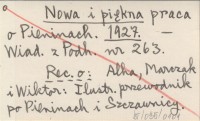 Nowa i piękna praca
o Pieninach. 1927. —
Wiad. z Podh. nr 263.
Rec. o: Alka, Marczak
i Wiktor: Ilustr. przewodnik
po Pieninach i Szczawnicy.